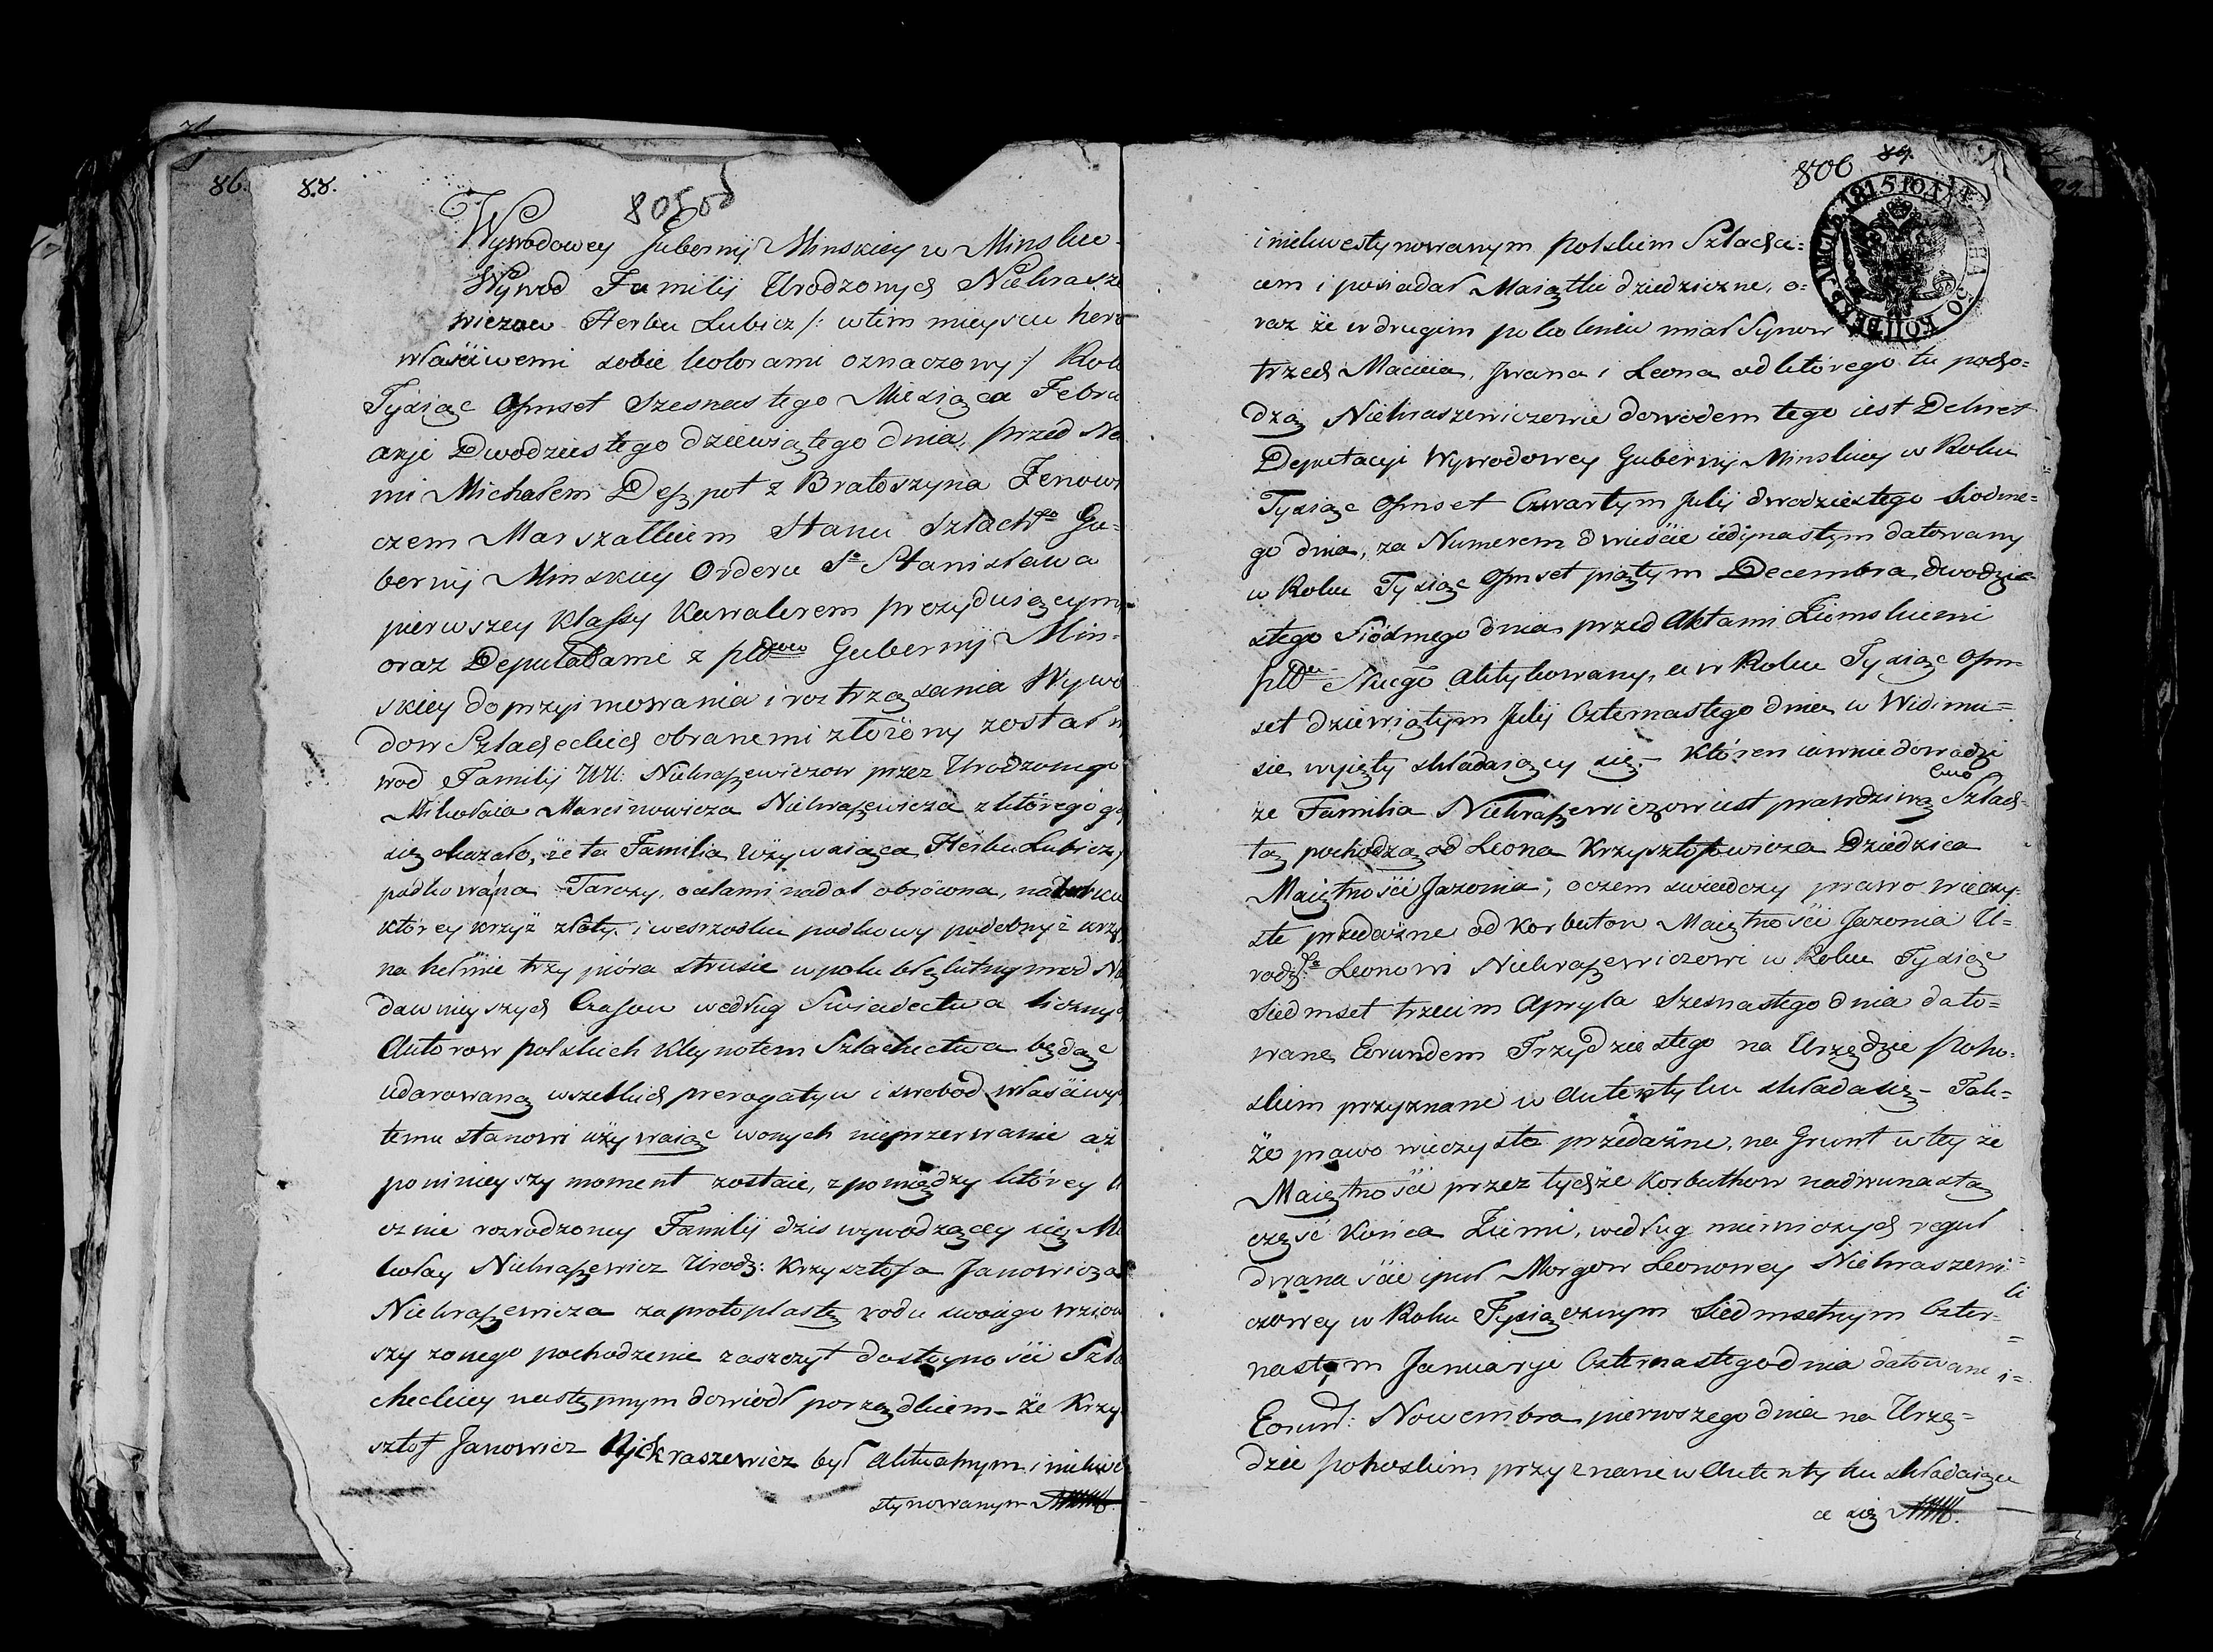 86.
88.
805 об
Wywodowey Gubernij Minskiey w Minsku
Wywod Familij Urodzonych Niekrasze
wiczow Herbu Lubicz /: w tim mieyscu herb
właściwemi sobie kolorami oznaczony :/ Roku
Tysiąc Ośmset Szesnastego Miesiąca Febru
aryi Dwódziestego dziewiątego dnia, przed Na
mi Michałem Deszpot z Bratoszyna Zenowi
czem Marszałkiem Stanu Szlachgo Gu=
bernij Minskiey Orderu So Stanisława
pierwszey Klassy Kawalerem prezyduiącym,
oraz Deputatami z pttow Gubernij Min=
skiey do przyimowania i roztrząsania Wywo
dow Szlacheckich obranemi złożony został wy
wod Familij UU. Niekraszewiczow przez Urodzonego
Mikołaia Marcinowicza Niekraszewicza z którego gdy
się okazało, że ta Familia używaiąca Herbu Lubicz,
podkowa na Tarczy, ocelami na doł obrócona, na
którey krzyż złoty, i we srzodku podkowy podobnyż krzyż
na hełmie trzy pióra strusie w polu błękitnym od Na
dawnieyszych Czasow według Swiadectwa licznych
Autorow polskich Kleynotem Szlachectwa będąc
udarowaną wszelkich prerogatyw i swobod właściwych
temu stanowi używaiąc w onych nieprzerwanie aż
po ninieyszy moment zostaie, z pomiędzy którey
cznie rozrodzoney Familij dzis wywodzącey się Mi
kołay Niekraszewicz Urodz: Krzysztofa Janowicza
Niekraszewicza za protoplastę rodu swoiego wziow
szy z onego pochodzenie zaszczyt dostoyności Szla
checkiey następnym dowiodł porządkiem – że Krzy
sztof Janowicz Niekraszewicz był Aktualnym i niekwe
stynowanym
806 89.
1815 ГОДА
i niekwestynowanym polskim Szlachci=
cem i posiadał Maiątki dziedziczne, o=
raz że w drugim pokoleniu miał Synow
trzech Macieia, Jwana i Leona od którego tu pocho=
dzą Niekraszewiczowie dowodem tego iest Dekret
Deputacyi Wywodowey Gubernij Minskiey w Roku
Tysiąc Ośmset Czwartym Julij dwodziestego siodme=
go dnia, za Numerem dwieście iedynastym datowany
w Roku Tysiąc Ośmset piątym Decembra dwodzie=
stego Siódmego dnia przed Aktami Ziemskiemi
pttu Sluckgo Aktykowany, a w Roku Tysiąc Ośm=
set dziewiątym Julij Czternastego dnia w Widimu=
sie wyięty składaiący się – Któren iawnie dowodzi
że Familia Niekraszewiczow iest prawdziwą Szlach=
tą pochodzą od Leona Krzysztofowicza Dziedzica
Maiętności Jazonia, o czem swiadczy prawo wieczy=
ste przedażne od Korbutow Maiętności Jazonia U=
rodz: Leonowi Niekraszewiczowi w Roku Tysiąc
Siedmset trzecim Apryla Szesnastego dnia dato=
wane, Eorundem Trzydziestego na Urzędzie
skim przyznane w Autentyku składa się – Tak=
że prawo wieczysto przedażne, na Grunt w tey że
Maiętności przez tychże Korbuthow na dwunastą
część Konca Ziemi, według mierniczych reguł
dwanaście i puł Morgow Leonowey Niekraszewi=
czowey w Roku Tysiącznym Siedmsetnym Czter=
nastym Januaryi Czternastego dnia datowane i=
Eorund: Nowembra pierwszego dnia na Urzę=
dzie przyznane w Autentyku składaiące
ce się